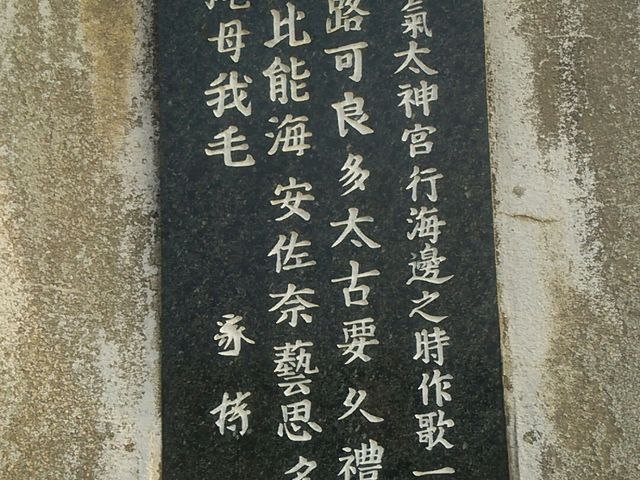 氣太神宮行海邊之時作歌一
路可良多太古要久禮
比能海安佐奈藝思多
母我毛
家持